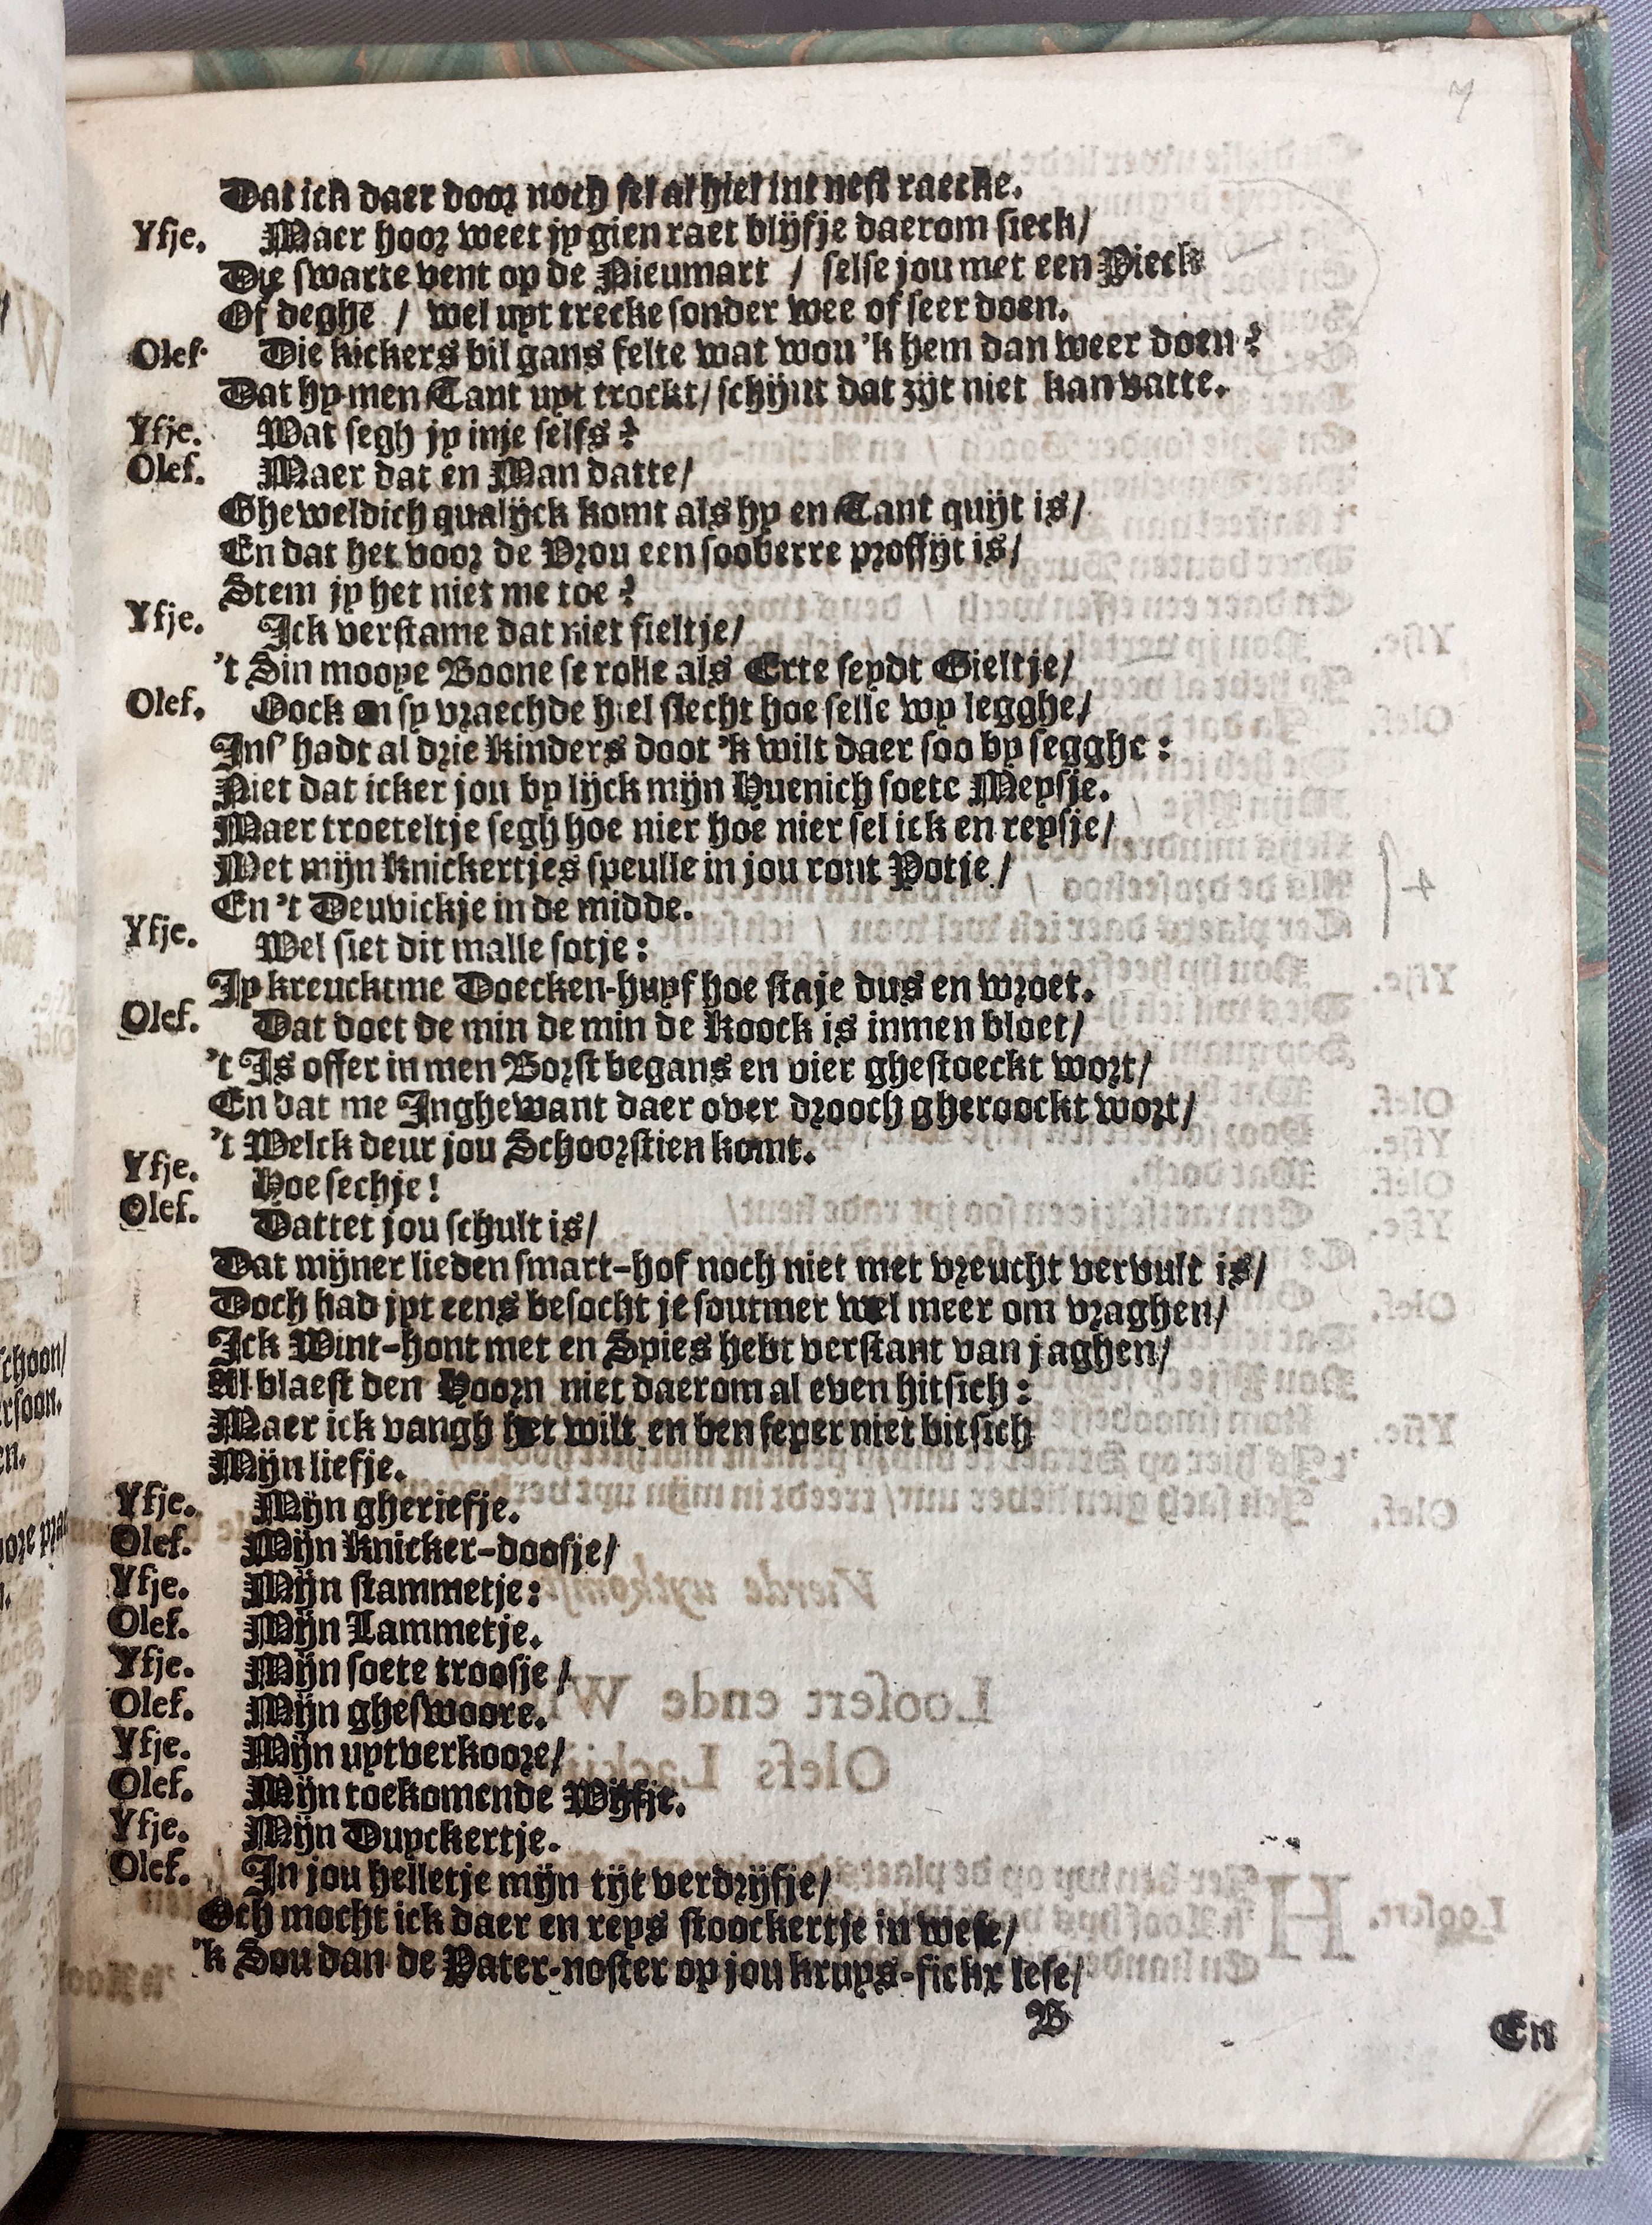 7
Dat ick daer door noch sel al hiel int nest raecke.
Yfje. Maer hoor weet jy gien raet blijfje daerom sieck/
Die swarte vent op de Nieumart / selse jou met een Pieck
Of deghe / wel uyt trecke sonder wee of seer doen.
Olef. Die kickers bil gans felte wat wou 'k hem dan weer doen?
Dat hy men Tant uyt trockt/ schijnt dat zijt niet kan vatte.
Yfje. Wat segh jy inje selfs?
Olef. Maer dat en Man datte/
Gheweldich qualijck komt als hy en Tant quijt is/
En dat het voor de Vrou een sooberre proffijt is/
Stem jy het niet me toe?
Yfje. Ick verstame dat niet fieltje/
't Sin mooye Boone se rolle als Erte seydt Gieltje/
Olef. Oock en sy vraechde hiel slecht hoe selle wy legghe/
Ins' hadt al drie kinders doot 'k wilt daer soo by segghe:
Niet dat icker jou by lijck mijn Huenich soete Meysje.
Maer troeteltje segh hoe nier hoe nier sel ick en reysje/
Met mijn knickertjes speulle in jou ront Potje/
En 't Deuvickje in de midde.
Yfje. Wel siet dit malle sotje:
Jy kreucktme Doecken-huyf hoe staje dus en wroet.
Olef. Dat doet de min de min de Koock is inmen bloet/
't Is offer in men Borst begans en vier ghestoeckt wort/
En dat me Inghewant daer over drooch gheroockt wort/
't Welck deur jou Schoorstien komt.
Yfje. Hoe sechje!
Olef. Dattet jou schult is/
Dat mijner lieden smart-hof noch niet met vreucht vervult is/
Doch had jyt eens besocht je soutmer wel meer om vraghen/
Ick Wint-hont met en Spies hebt verstant van jaghen/
Al blaest den Hoorn niet daerom al even hitsich:
Maer ick vangh het wilt en ben seper niet bitsich
Mijn liefje.
Yfje. Mijn gheriefje.
Olef. Mijn Knicker-doosje/
Yfje. Mijn stammetje:
Olef. Mijn Lammetje.
Yfje. Mijn soete troosje/
Olef. Mijn gheswoore.
Yfje. Mijn uytverkoore/
Olef. Mijn toekomende Wijfje.
Yfje. Mijn Duyckertje.
Olef. In jou helletje mijn tijt verdrijfje/
Och mocht ick daer en reys stoockertje in wese/
'k Sou dan de Pater-noster op jou kruys-fickx lese/
B
En